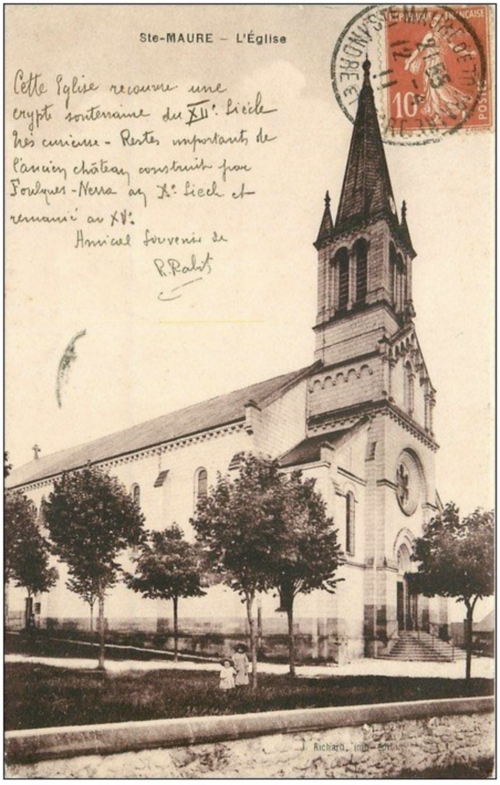 Ste-MAURE - L'Église
Cette Eglise recouvre une
crypte souterraine du XIIe. Siècle
très curieuse - Restes importants de
l'ancien château construit par
Foulques-Nerra au Xe. Siècle et
remanié au XVe.
Amical Souvenir de
R. Rabit
REPUBLIQUE FRANÇAISE
10c
POSTES
STE-MAURE DE TOURAINE
INDRE-ET-L
Richard, imp.